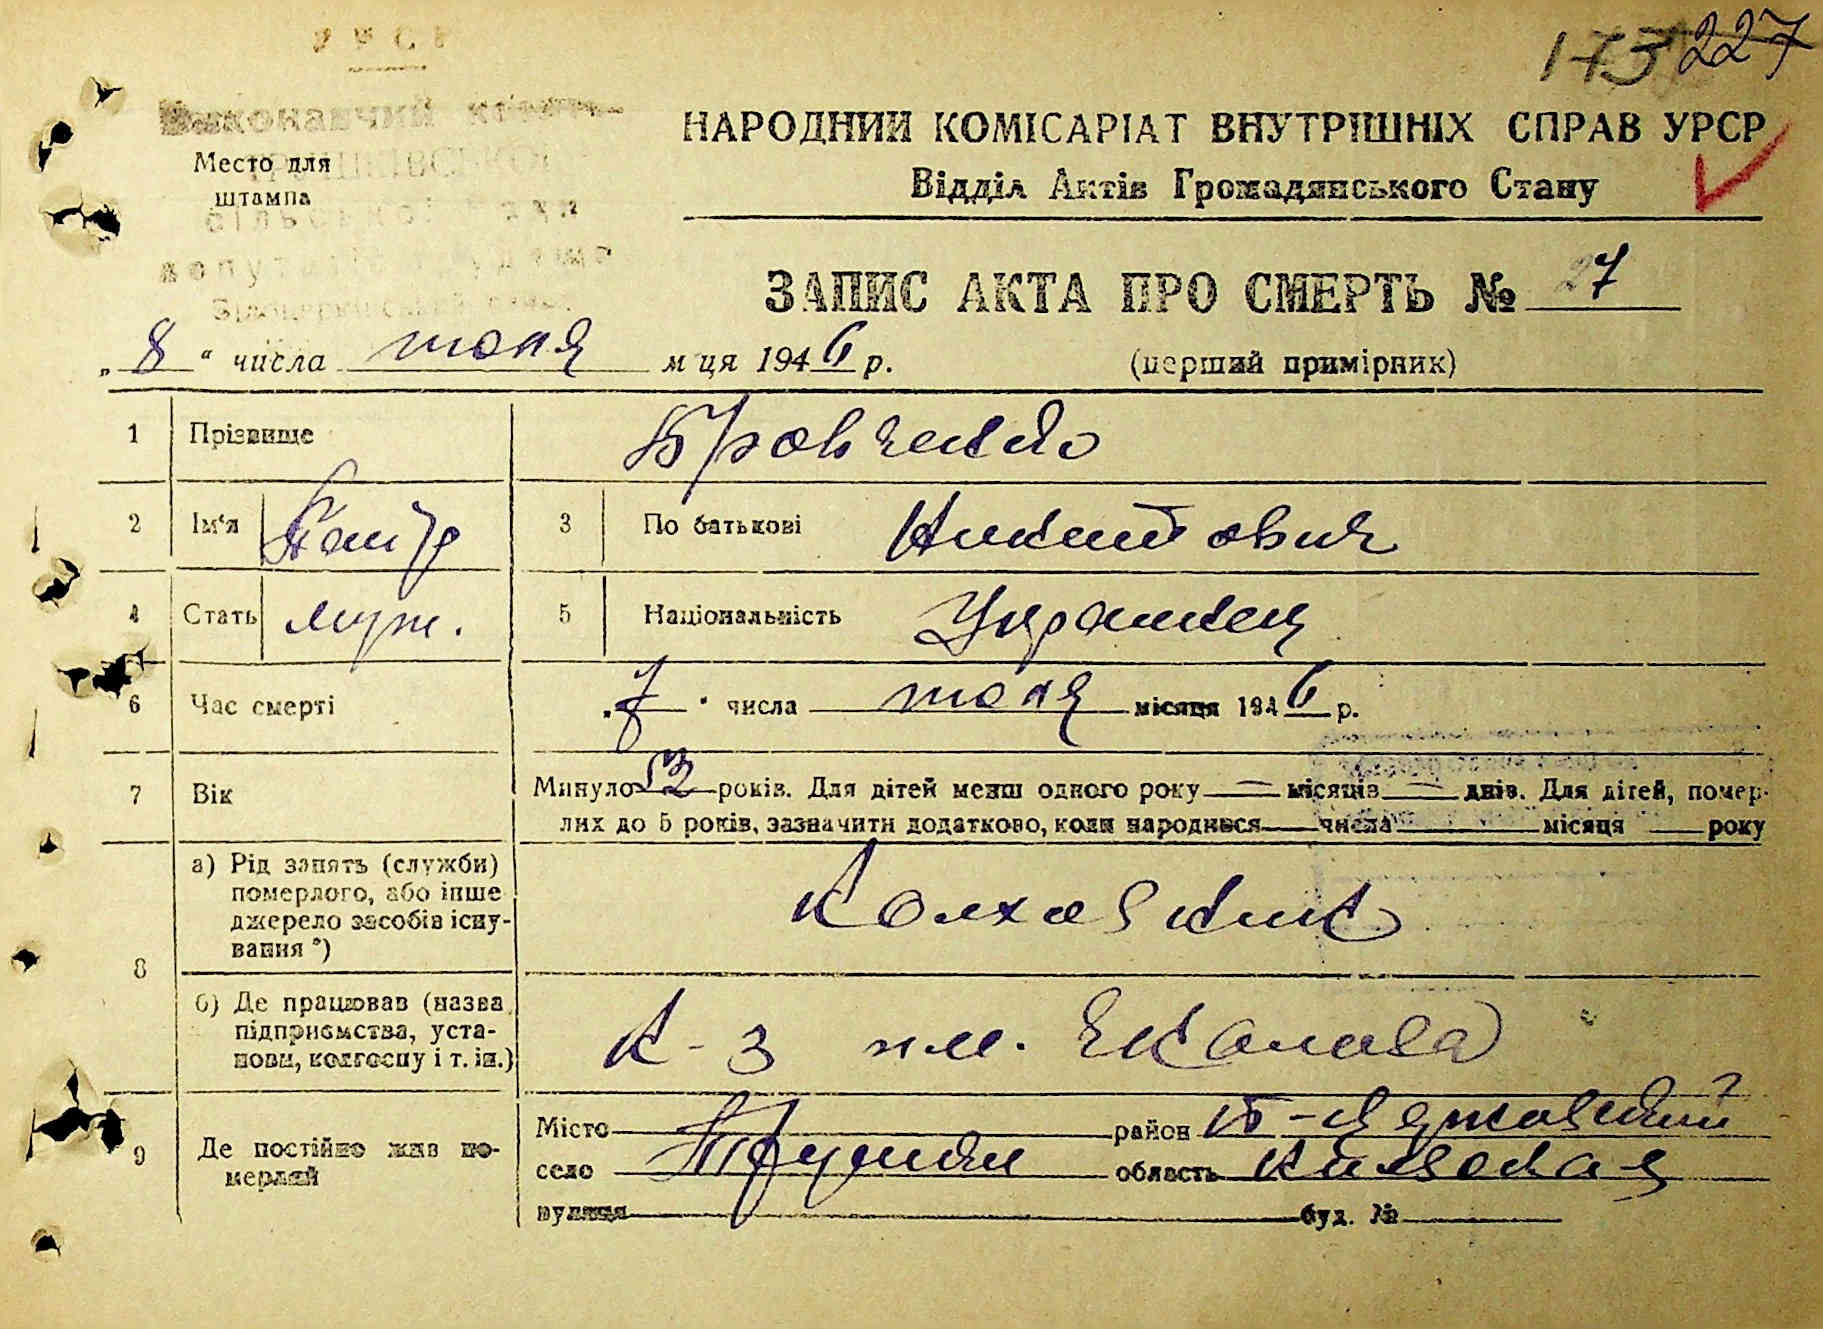 У Р С Р
173 227
Виконавчий коміт-
Место для
штампа
НАРОДНИЙ КОМІСАРІАТ ВНУТРІШНІХ СПРАВ УРСР
Відділ Актів Громадянського Стану
ЗАПИС АКТА ПРО СМЕРТЬ № 27
„8“ числа июня м ця 1946 р. (перший примірник)
1 Прізвище Бровченко
2 Ім'я Петр 3 По батькові Никитович
4 Стать муж. 5 Національність Украинец
6 Час смерті „7“ числа июня місяця 1946 р.
7 Вік Минуло 52 років. Для дітей менш одного року — місяців — днів. Для дітей, помер-
лих до 5 років, зазначити додатково, коли народився числа місяця року
8 а) Рід занять (служби)
померлого, або інше
джерело засобів існу-
вання *)
Колхозник
б) Де працював (назва
підприємства, уста-
нови, колгоспу і т. ін.)
К-з им. Чкалова
9 Де постійно жив по-
мерлий
Місто район Б-Церковский
село Трушки область Киевская
вулиця буд. №